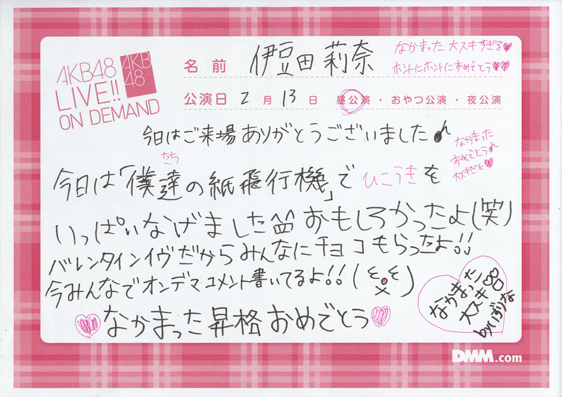 AKB48
LIVE!!
ON DEMAND
AKB
48
名前 伊豆田莉奈
なかまった 大スキすぎる♥
ホントにホントにおめでとう♥♥
公演日 2月13日 昼公演・おやつ公演・夜公演
今日はご来場ありがとうございました♪
なかまった
おめでとう
大すきだよ♥
たち
今日は「僕達の紙飛行機」でひこうきを
いっぱいなげました おもしろかったよ(笑)
バレンタインイヴだからみんなにチョコもらったよ!!
今みんなでオンデマコメント書いてるよ!!
♥なかまった昇格おめでとう♥
なかまった
大スキ
byいずりな
DMM.com